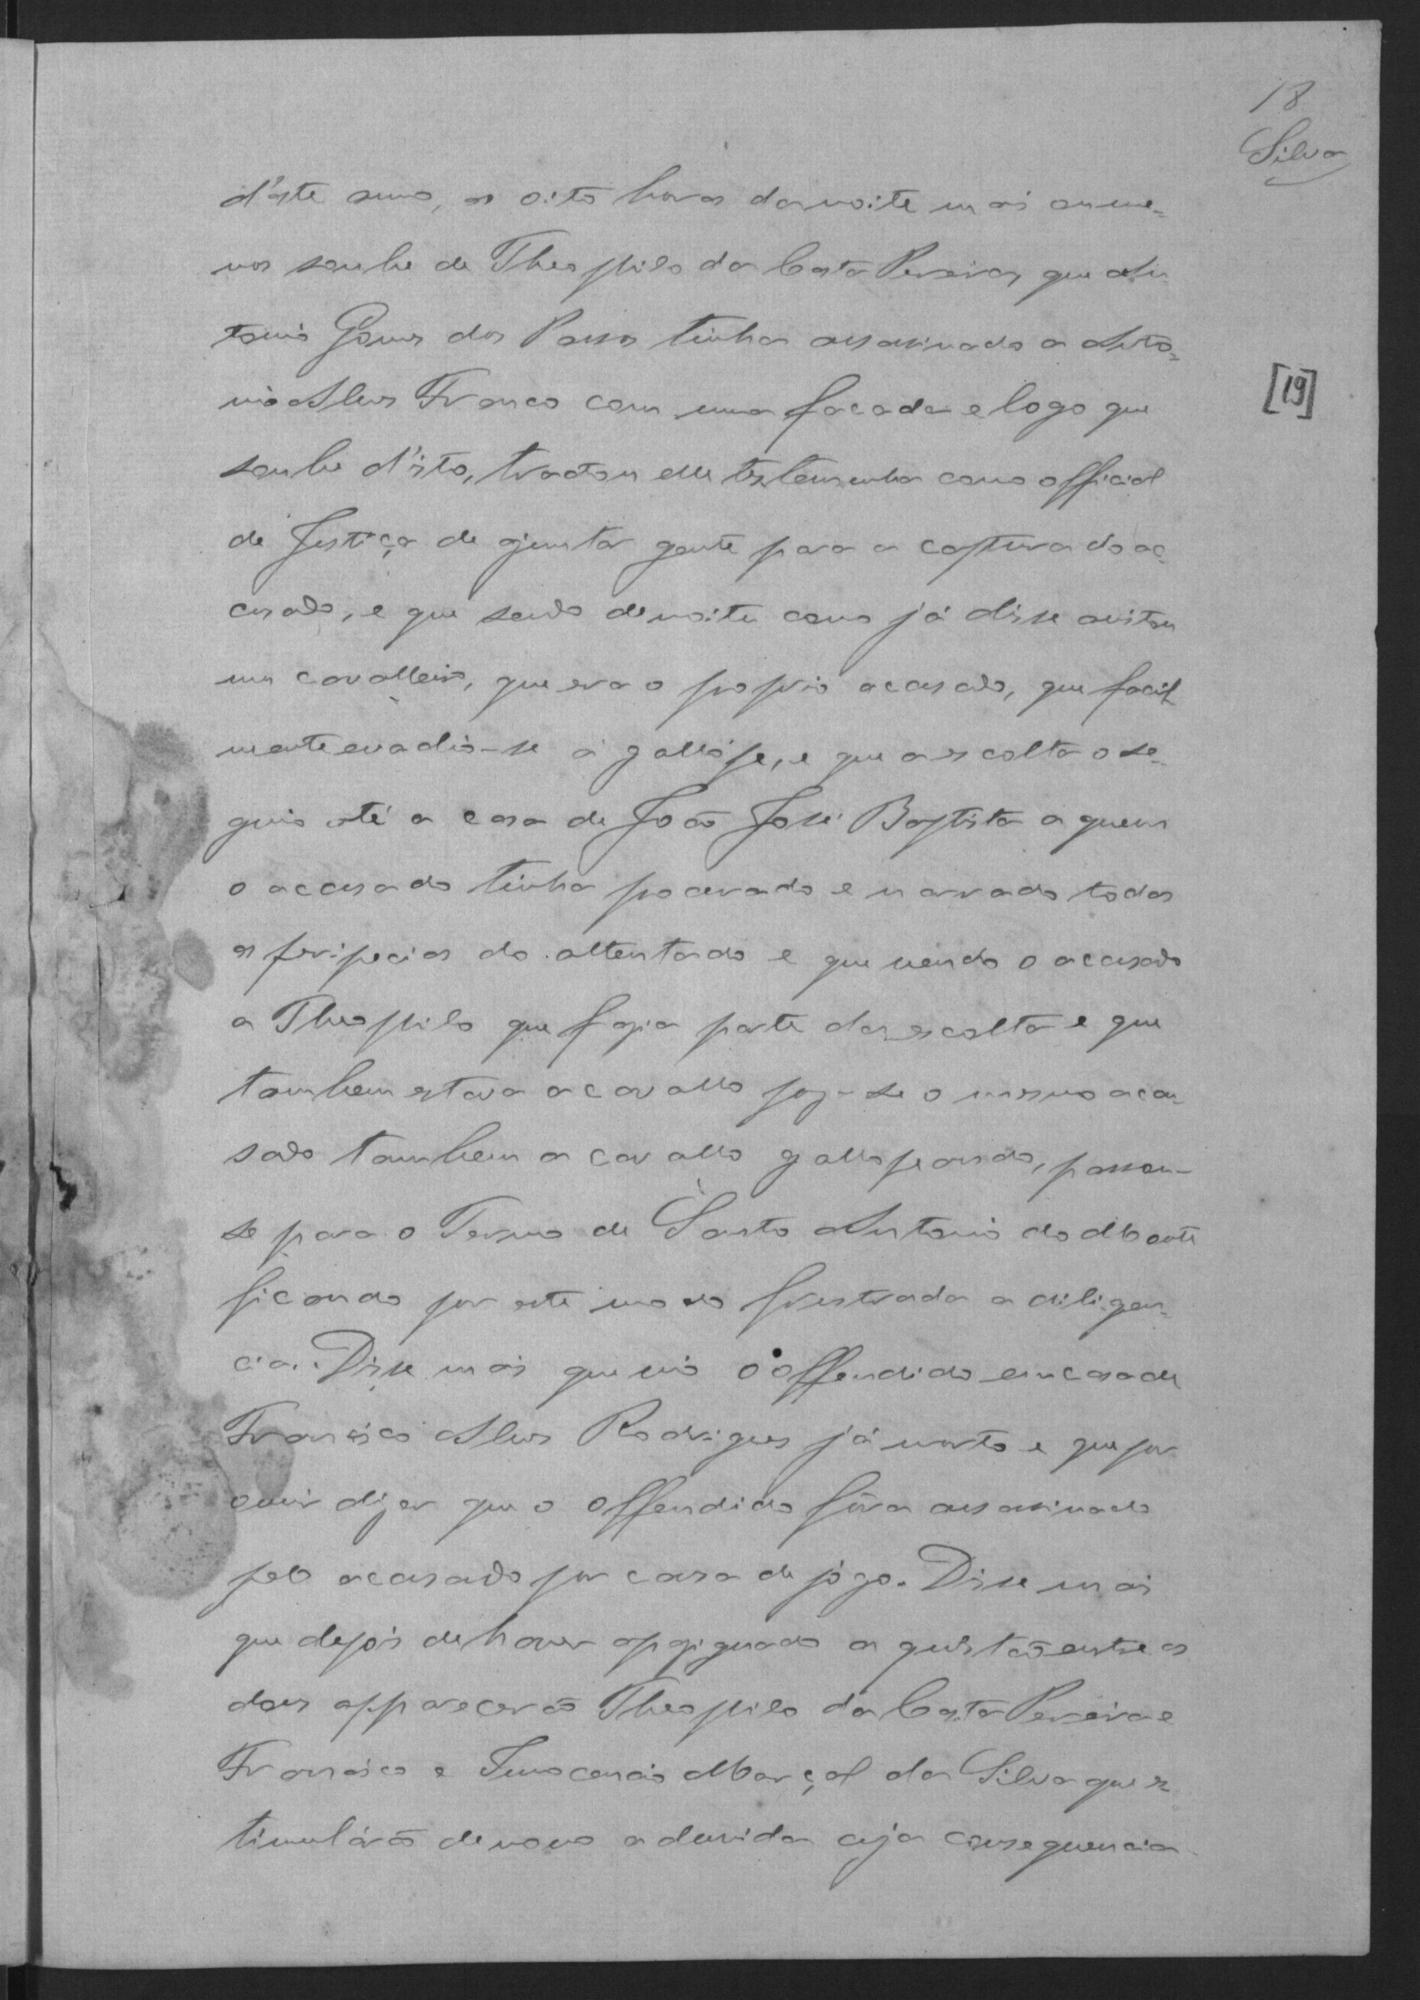 18
Silva
d'este anno, as oito horas da noite mais ou me-
nos soube de Theophilo da Costa Pereira, que An-
tonio Gomes dos Passos tinha assassinado a Anto-
nio Alves Franco com uma facada e logo que
soube d'isto, tractou elle testemunha como official
de Justiça de ajuntar gente para a captura do ac-
cusado, e que sendo de noite como já disse avistou
um cavalleiro, que era o proprio acusado, que facil
mente evadio-se a gallópe, e que a escolta o se-
guio até a casa de João José Baptista a quem
o accusado tinha procurado e narrado todas
as peripecias do attentado e que vendo o acusado
a Theophilo que fazia parte da escolta e que
tambem estava a cavallo poz-se o mesmo acu-
sado tambem a cavallo gallopeando, passou-
se para o Termo de Santo Antonio do Monte
ficando por este modo frustrada a diligen-
cia. Disse mais que vio o offendido em casa de
Francisco Alves Rodrigues já morto e que por
ouvir dizer que o offendido fôra assassinado
pelo acusado por causa de jôgo. Disse mais
que depois de haver apaziguado a questão entre os
dous apparecerão Theophilo da Costa Pereira e
Francisco e Innocencio Marçal da Silva que es
timulárão de novo a duvida cuja consequencia
[19]